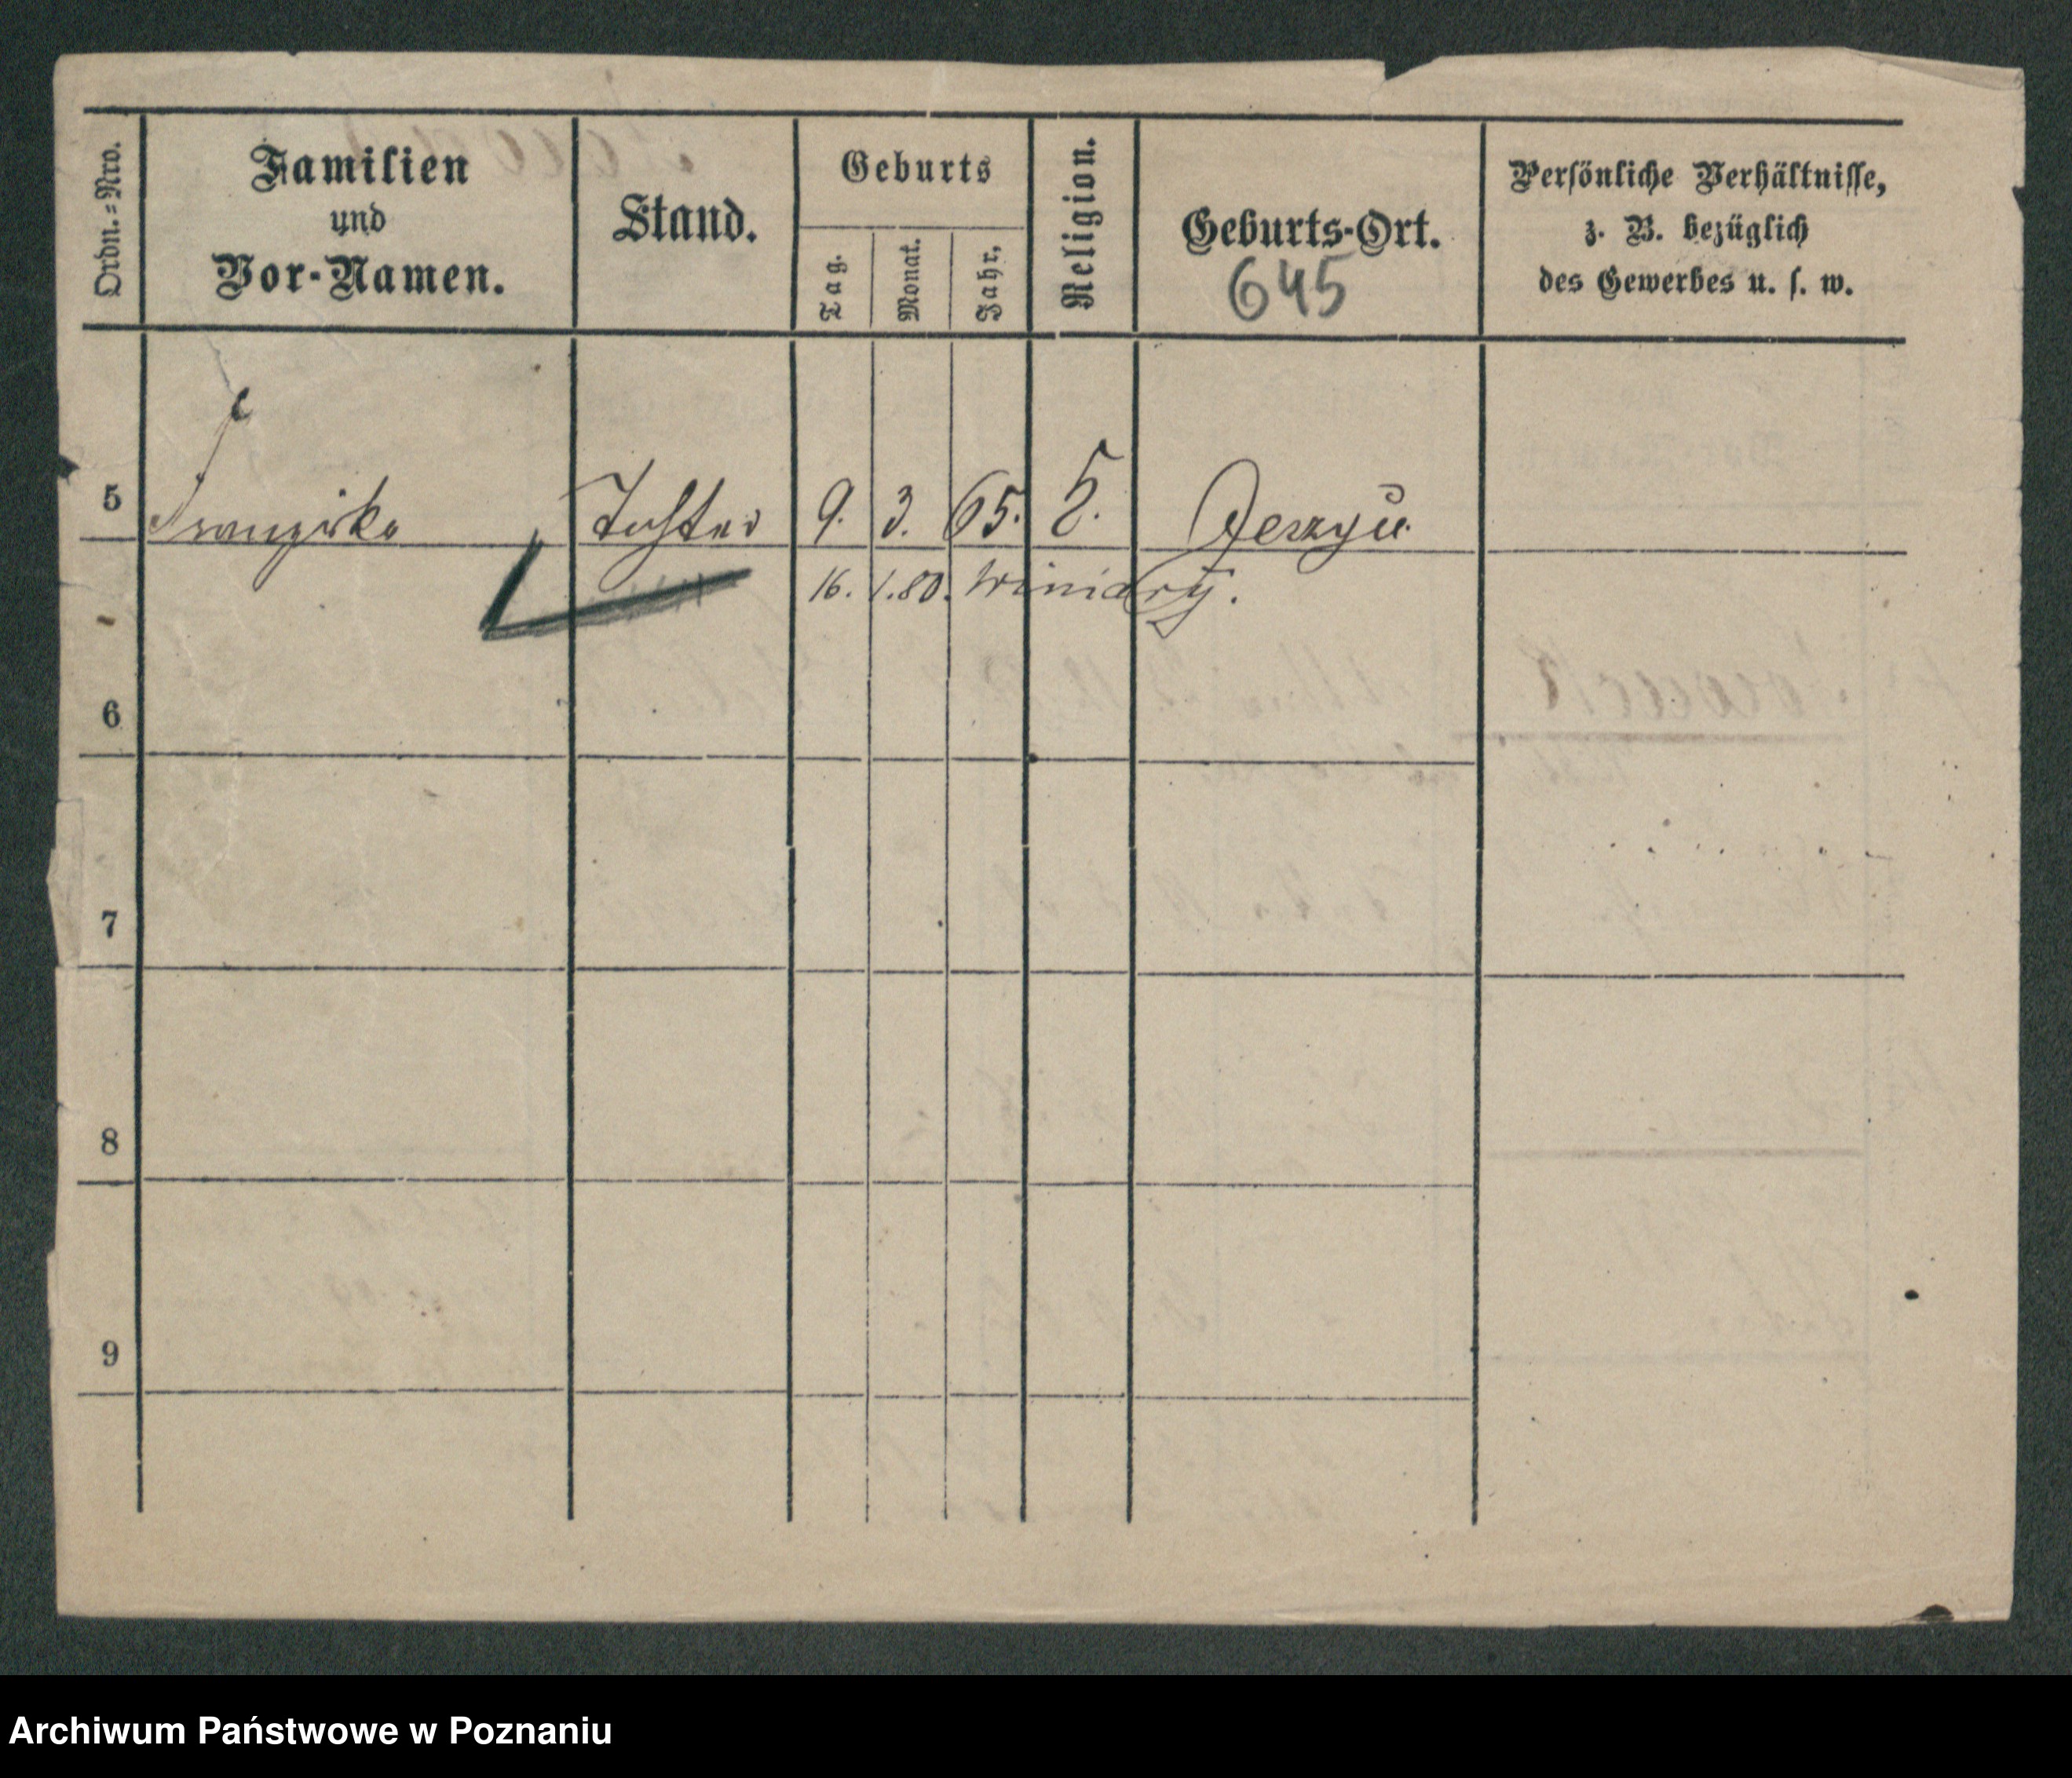 Ordn.=Nro.
Familien
und
Vor-Namen.
Stand.
Geburts
Tag.
Monat.
Jahr.
Religion.
Geburts-Ort.
645
Persönliche Verhältnisse,
z. B. bezüglich
des Gewerbes u. s. w.
5 Franziska Tochter 9. 3. 65. Jerzyce
16. 1. 80. Winiary.
6
7
8
9
Archiwum Państwowe w Poznaniu